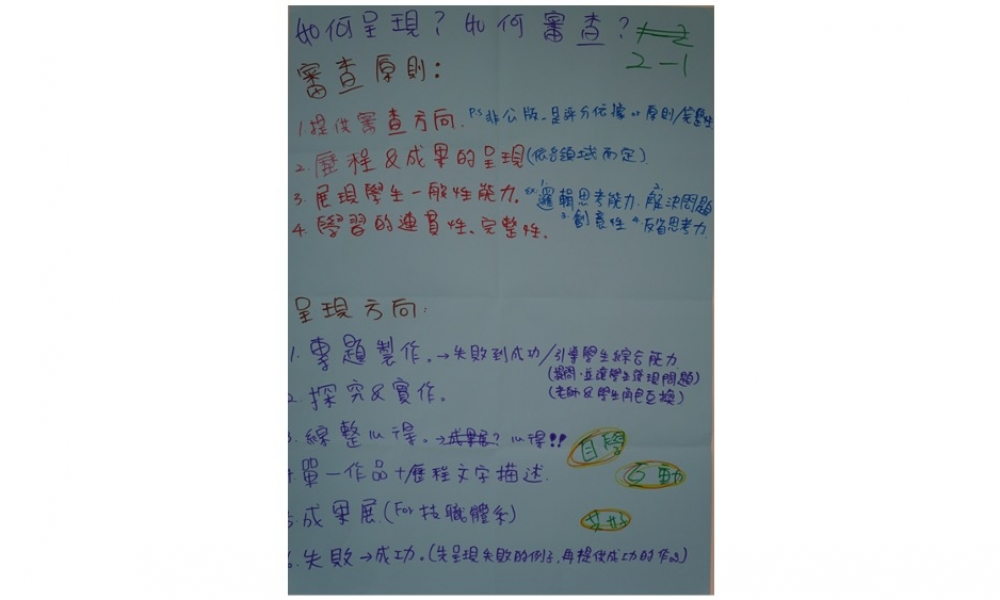 如何呈現？如何審查？
2-1
審查原則：
1.提供審查方向. P.S 非公版-是評分依據 or 原則/完整性
2.歷程&成果的呈現(依各領域而定)
3.展現學生一般性能力. ex. 1.邏輯思考能力. 2.解決問題
3.創意性 4.反省思考力.
4.學習的連貫性、完整性.
呈現方向：
1.專題製作。→失敗到成功/引導學生綜合能力
(提問.並讓學生發現問題)
(老師&學生角色互換)
2.探究&實作。
3.綜整心得。→成果展？心得!!
自學
4 單一作品+歷程文字描述.
互動
5.成果展(For 技職體系)
共好
6.失敗→成功。(先呈現失敗的例子,再提供成功的作品)